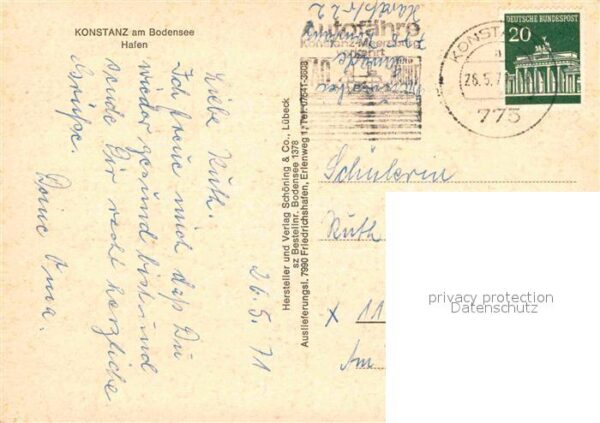 KONSTANZ am Bodensee
Hafen
26.5.71
Liebe Ruth.
Ich freue mich daß Du
wieder gesund bist und
sende Dir recht herzliche
Grüße.
Deine Oma.
Hersteller und Verlag Schöning & Co., Lübeck
sz Bestellnr. Bodensee 1378
Auslieferungsl. 7990 Friedrichshafen, Erlenweg 1, Tel. 07541-3608
Autofähre
Konstanz-Meersburg
KONSTA
a
26.5.7
775
DEUTSCHE BUNDESPOST
20
Schülerin
Ruth
x 11
Am
privacy protection
Datenschutz